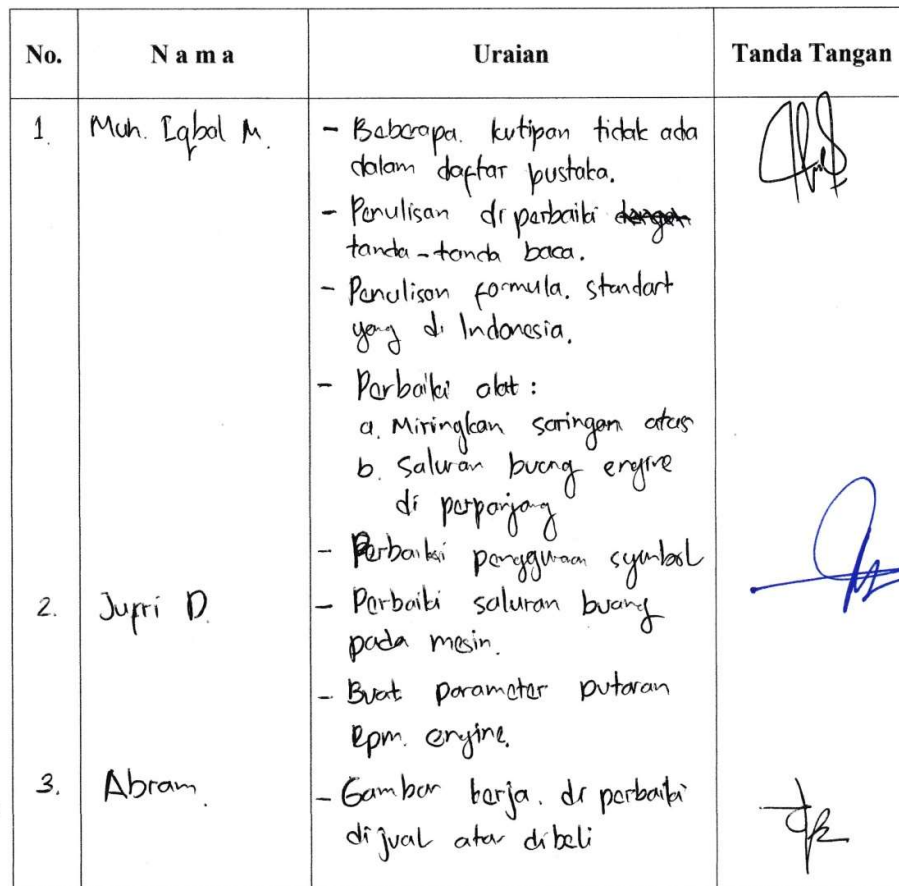 No. N a m a Uraian Tanda Tangan
1. Muh. Iqbal M. - Beberapa. kutipan tidak ada
dalam daftar pustaka.
- Penulisan di perbaiki dengan
tanda-tanda baca.
- Penulisan formula. standart
yang di Indonesia.
- Perbaiki alat :
a. Miringkan saringan atas
b. Saluran buang engine
di perpanjang
- Perbaiki penggunaan symbol
2. Jupri D. - Perbaiki saluran buang
pada mesin.
- Buat parameter putaran
Rpm. engine.
3. Abram. - Gambar kerja. di perbaiki
di jual atau dibeli